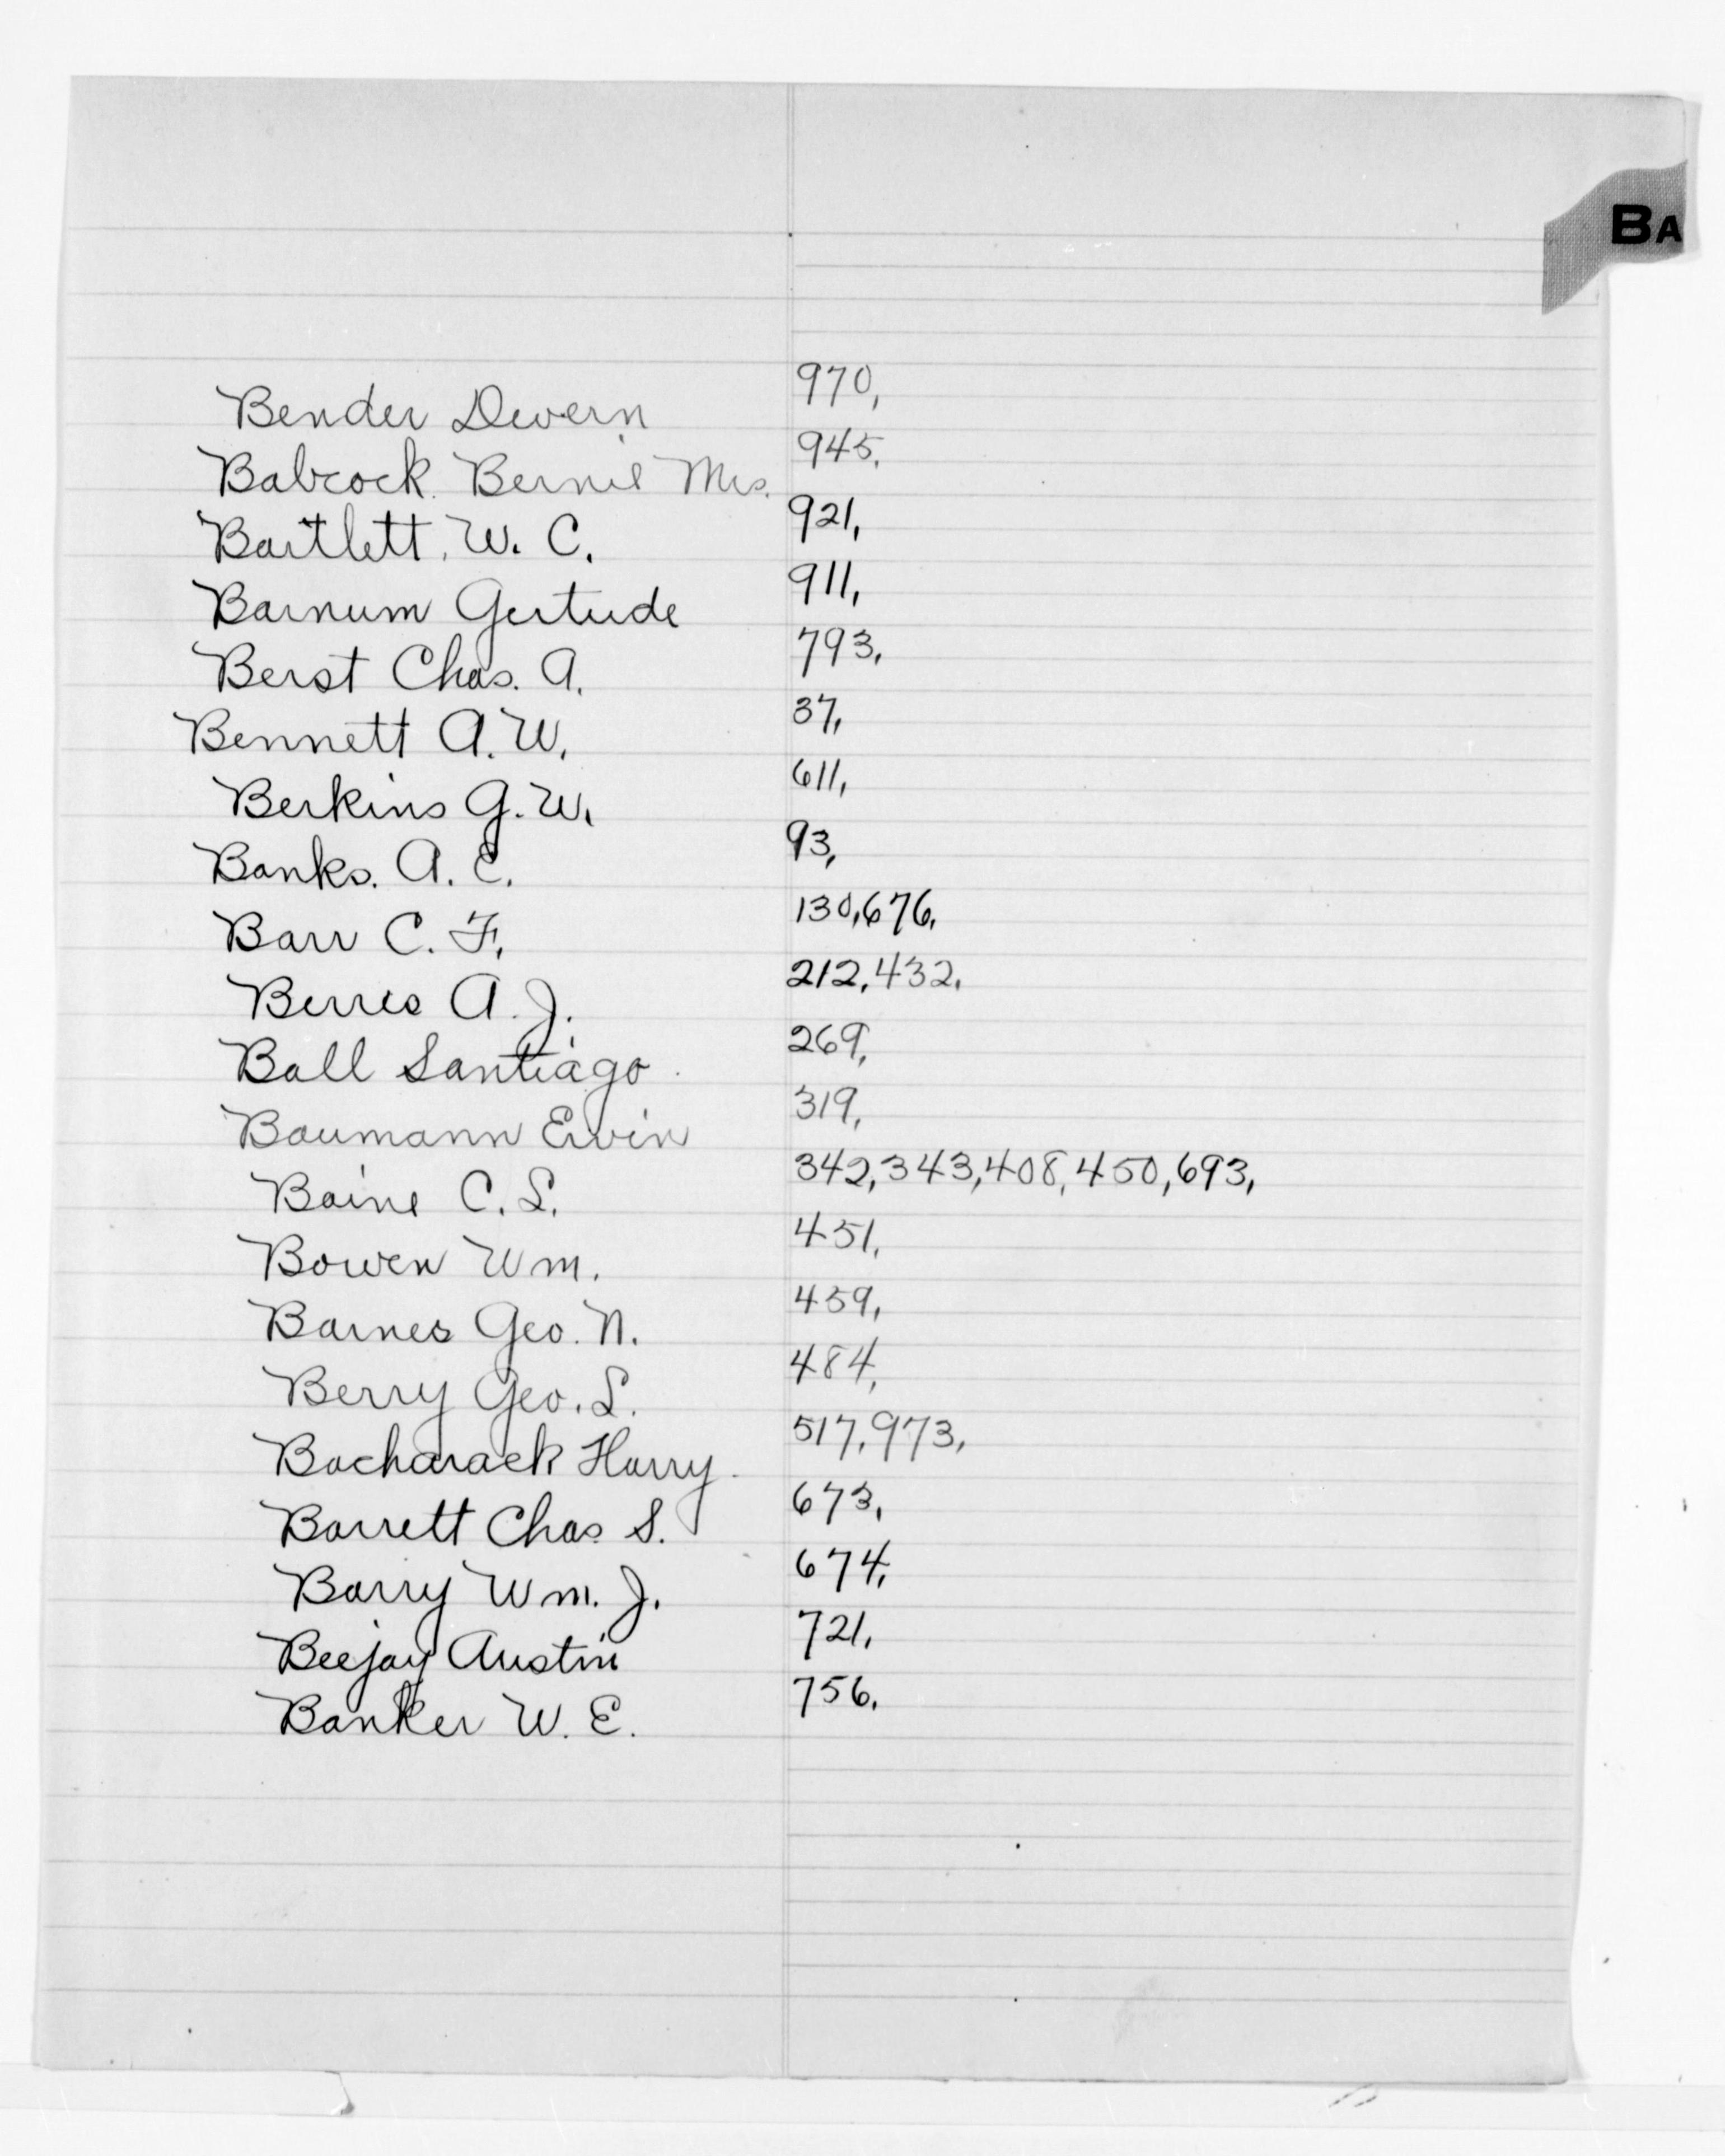 BA
Bender Devern 970,
Babcock. Bernie Mrs. 945,
Bartlett, W. C. 921,
Barnum Gertude 911,
Berst Chas. A. 793,
Bennett A. W. 37,
Berkins G. W. 611,
Banks. A. E. 93,
Barr C. F. 130,676,
Berres A. J. 212,432,
Ball Santiago. 269,
Baumann Ervin 319,
Baine C. L. 342,343,408,450,693,
Bowen Wm. 451,
Barnes Geo. N. 459,
Berry Geo. L. 484,
Bacharack Harry. 517,973,
Barrett Chas S. 673,
Barry Wm. J. 674,
Beejay Austin 721,
Banker W. E. 756,